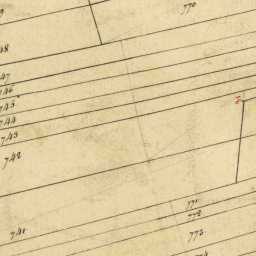 770
747
746
745
744
743
742
741
771
772
773